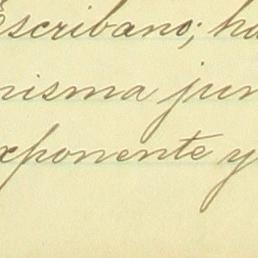 Escribano; ha
misma jun
xponente y